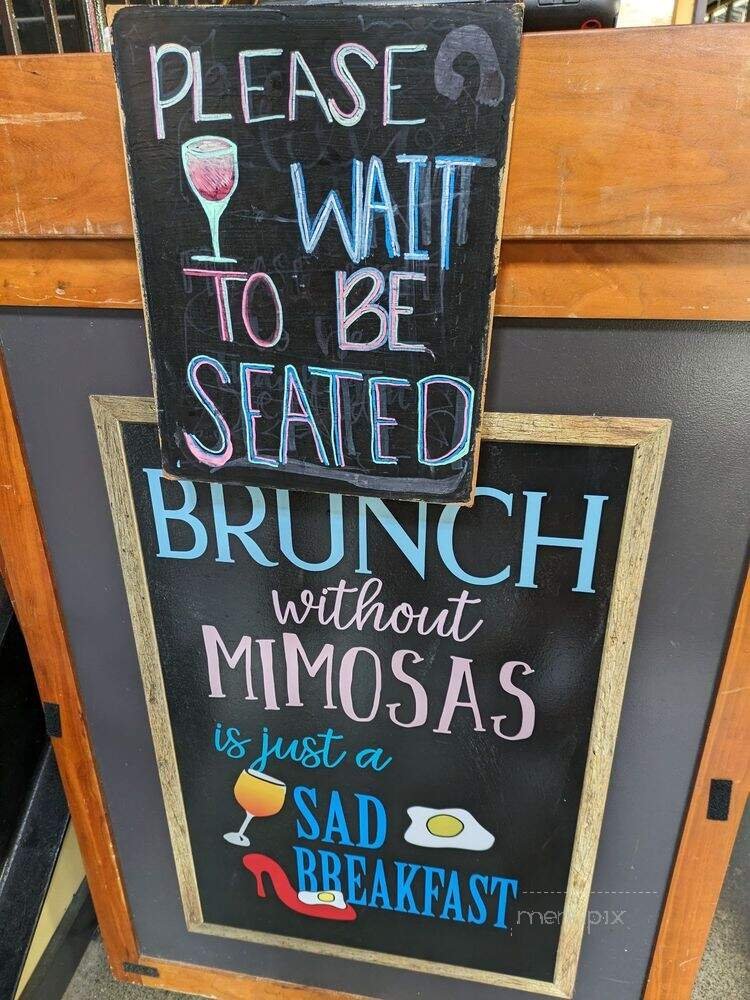 PLEASE
WAIT
TO BE
SEATED
BRUNCH
without
MIMOSAS
is just a
SAD
BREAKFAST
menupix